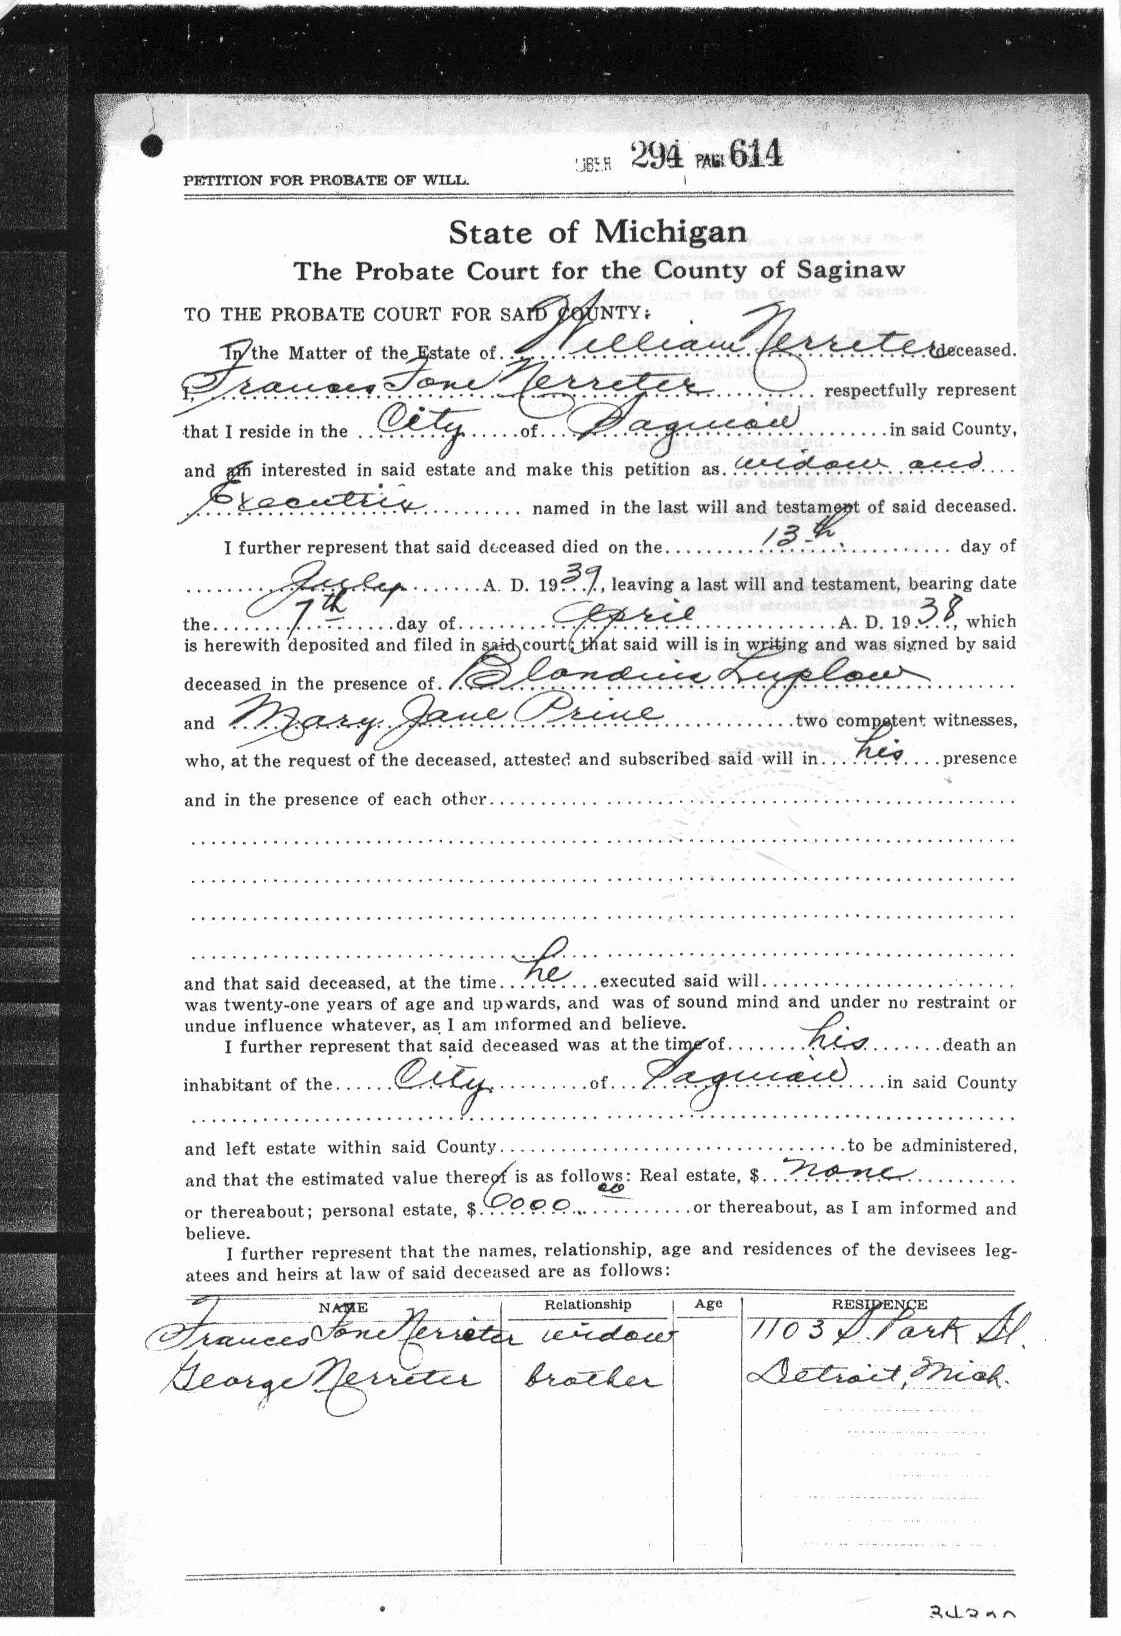 LIBER 294 PAGE 614
PETITION FOR PROBATE OF WILL.
State of Michigan
The Probate Court for the County of Saginaw
TO THE PROBATE COURT FOR SAID COUNTY:
In the Matter of the Estate of William Nerreter deceased.
I, Frances Fone Nerreter respectfully represent
that I reside in the City of Saginaw in said County,
and am interested in said estate and make this petition as widow and
Executrix named in the last will and testament of said deceased.
I further represent that said deceased died on the 13th day of
July A. D. 1939, leaving a last will and testament, bearing date
the 7th day of April A. D. 1938, which
is herewith deposited and filed in said court; that said will is in writing and was signed by said
deceased in the presence of Blondina Luplow
and Mary Jane Prine two competent witnesses,
who, at the request of the deceased, attested and subscribed said will in his presence
and in the presence of each other
and that said deceased, at the time he executed said will
was twenty-one years of age and upwards, and was of sound mind and under no restraint or
undue influence whatever, as I am informed and believe.
I further represent that said deceased was at the time of his death an
inhabitant of the City of Saginaw in said County
and left estate within said County to be administered,
and that the estimated value thereof is as follows: Real estate, $ none
or thereabout; personal estate, $ 6000.00 or thereabout, as I am informed and
believe.
I further represent that the names, relationship, age and residences of the devisees leg-
atees and heirs at law of said deceased are as follows:
NAME Relationship Age RESIDENCE
Frances Fone Nerreter widow 1103 S. Park St.
George Nerreter brother Detroit, Mich.